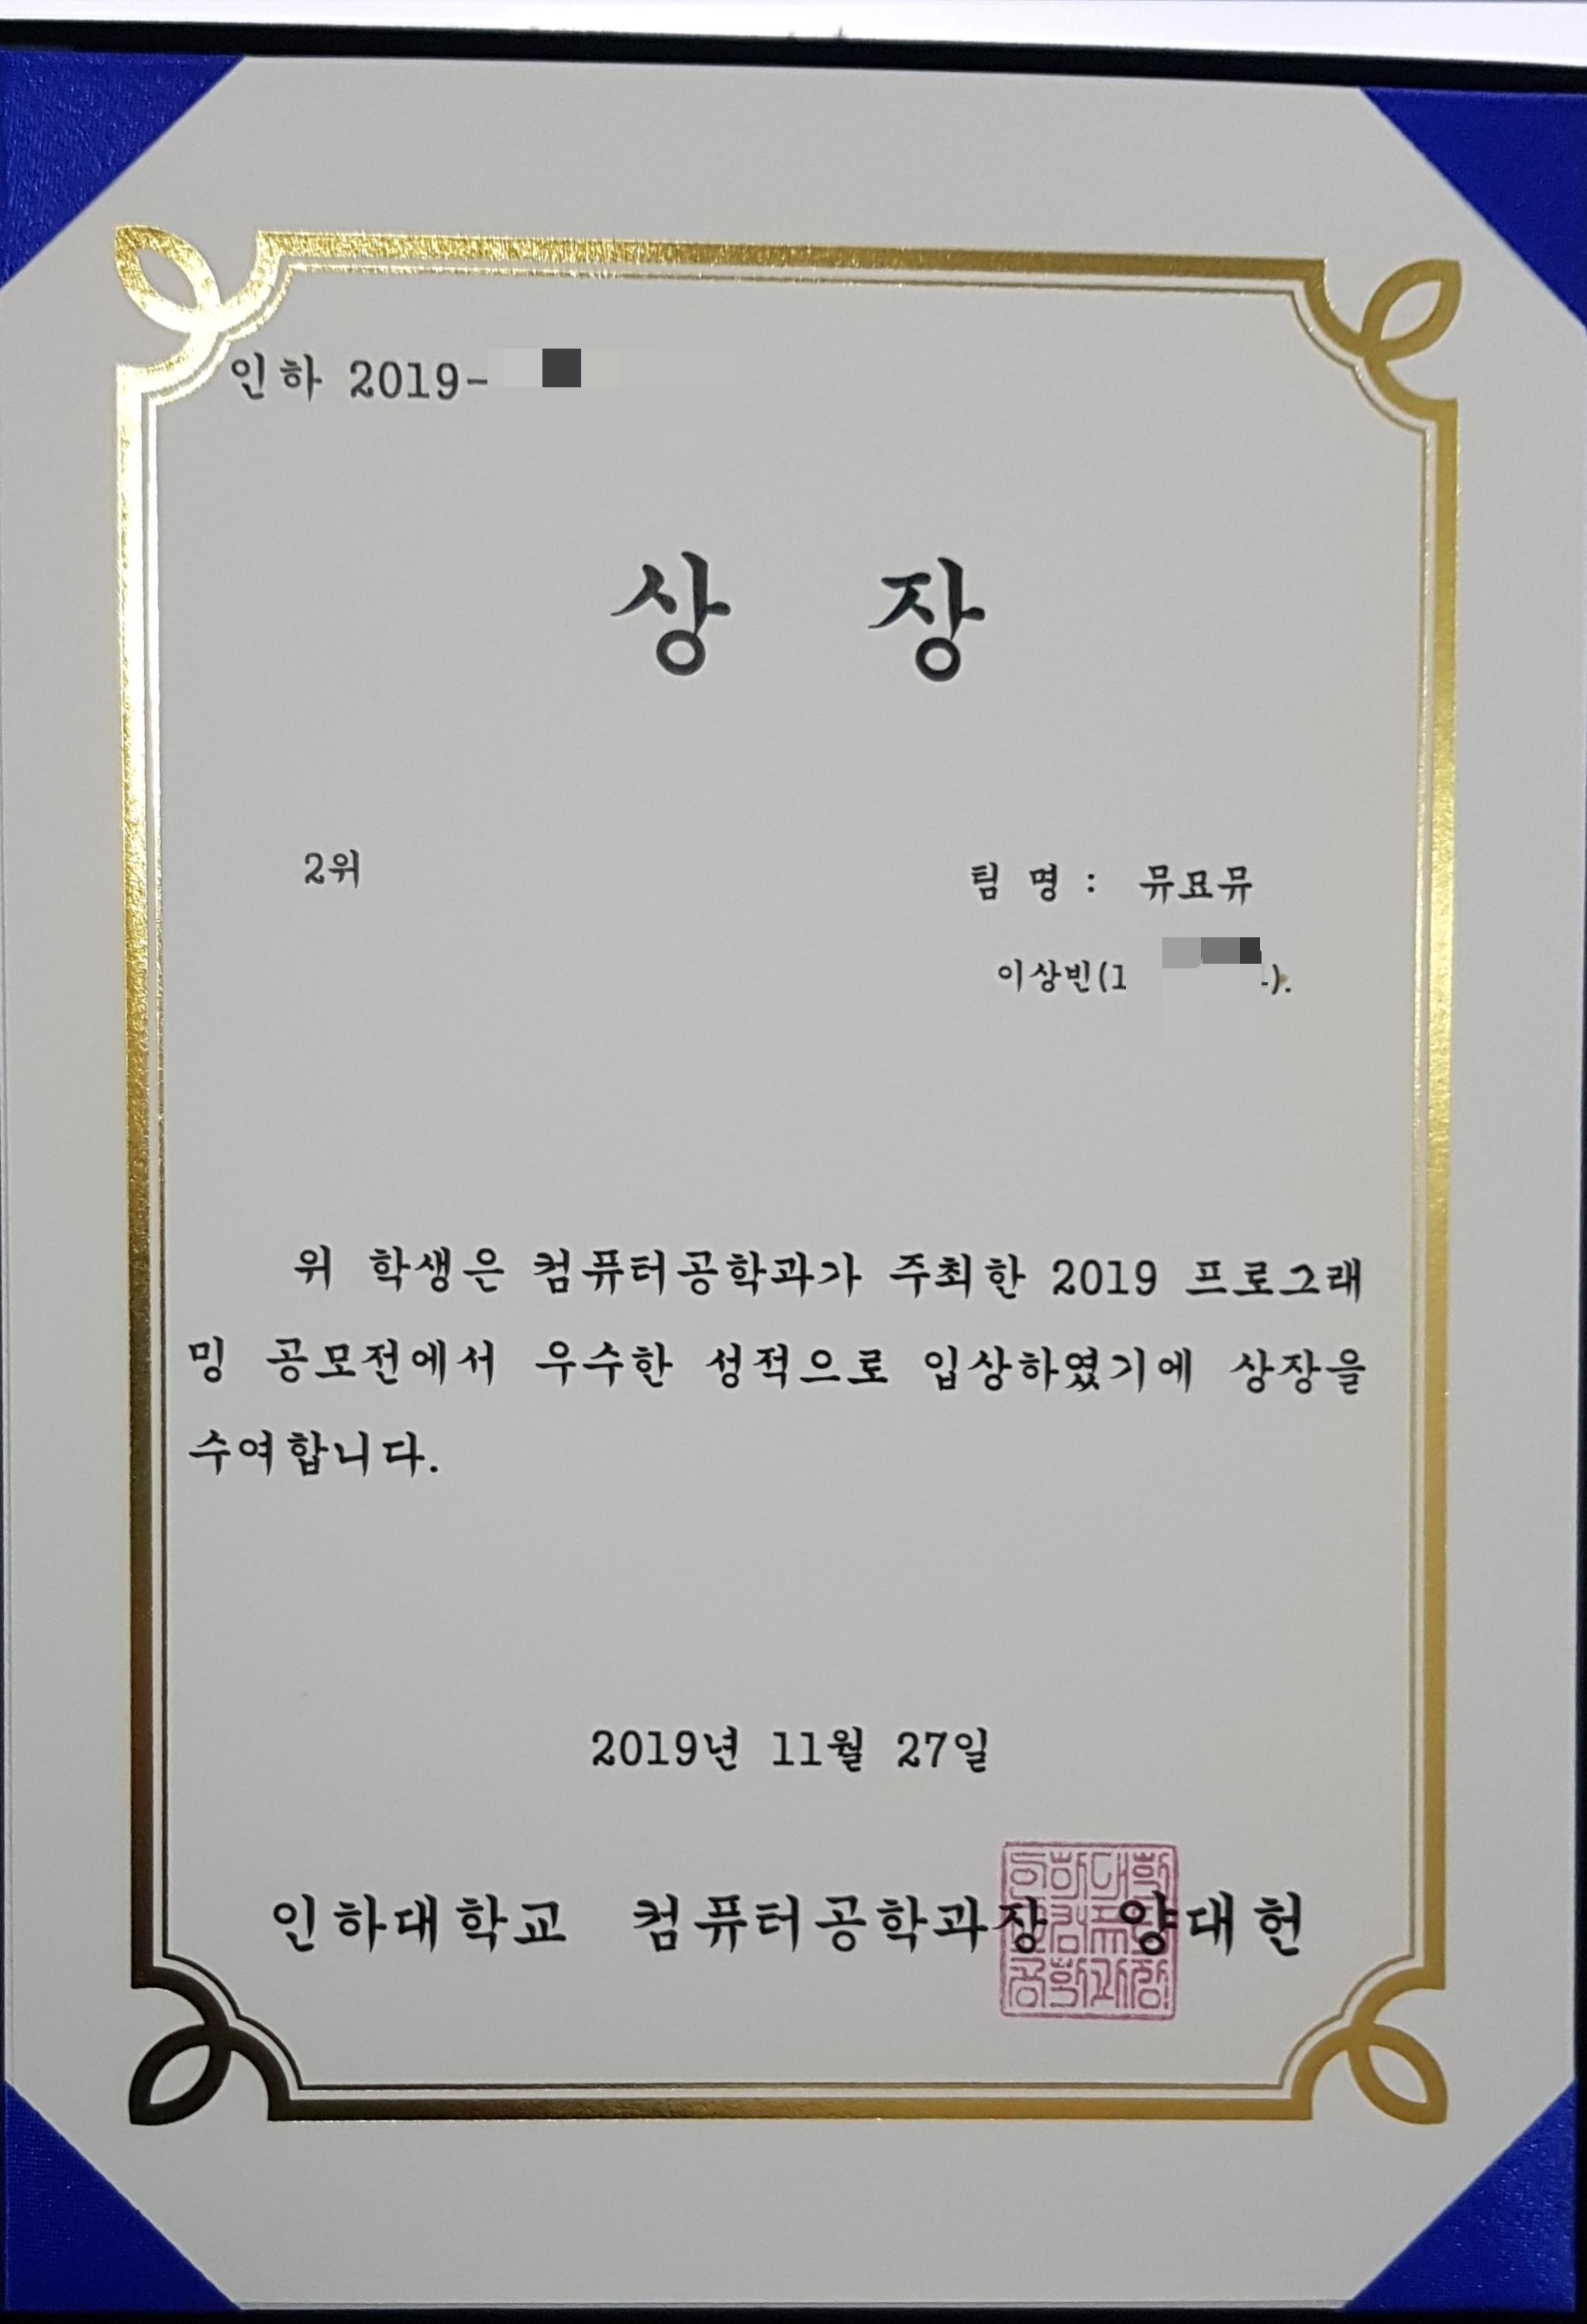 인하 2019-
상 장
2위
팀 명 : 뮤묘뮤
이상빈(1 ).
위 학생은 컴퓨터공학과가 주최한 2019 프로그래
밍 공모전에서 우수한 성적으로 입상하였기에 상장을
수여합니다.
2019년 11월 27일
인하대학교 컴퓨터공학과장 양대헌